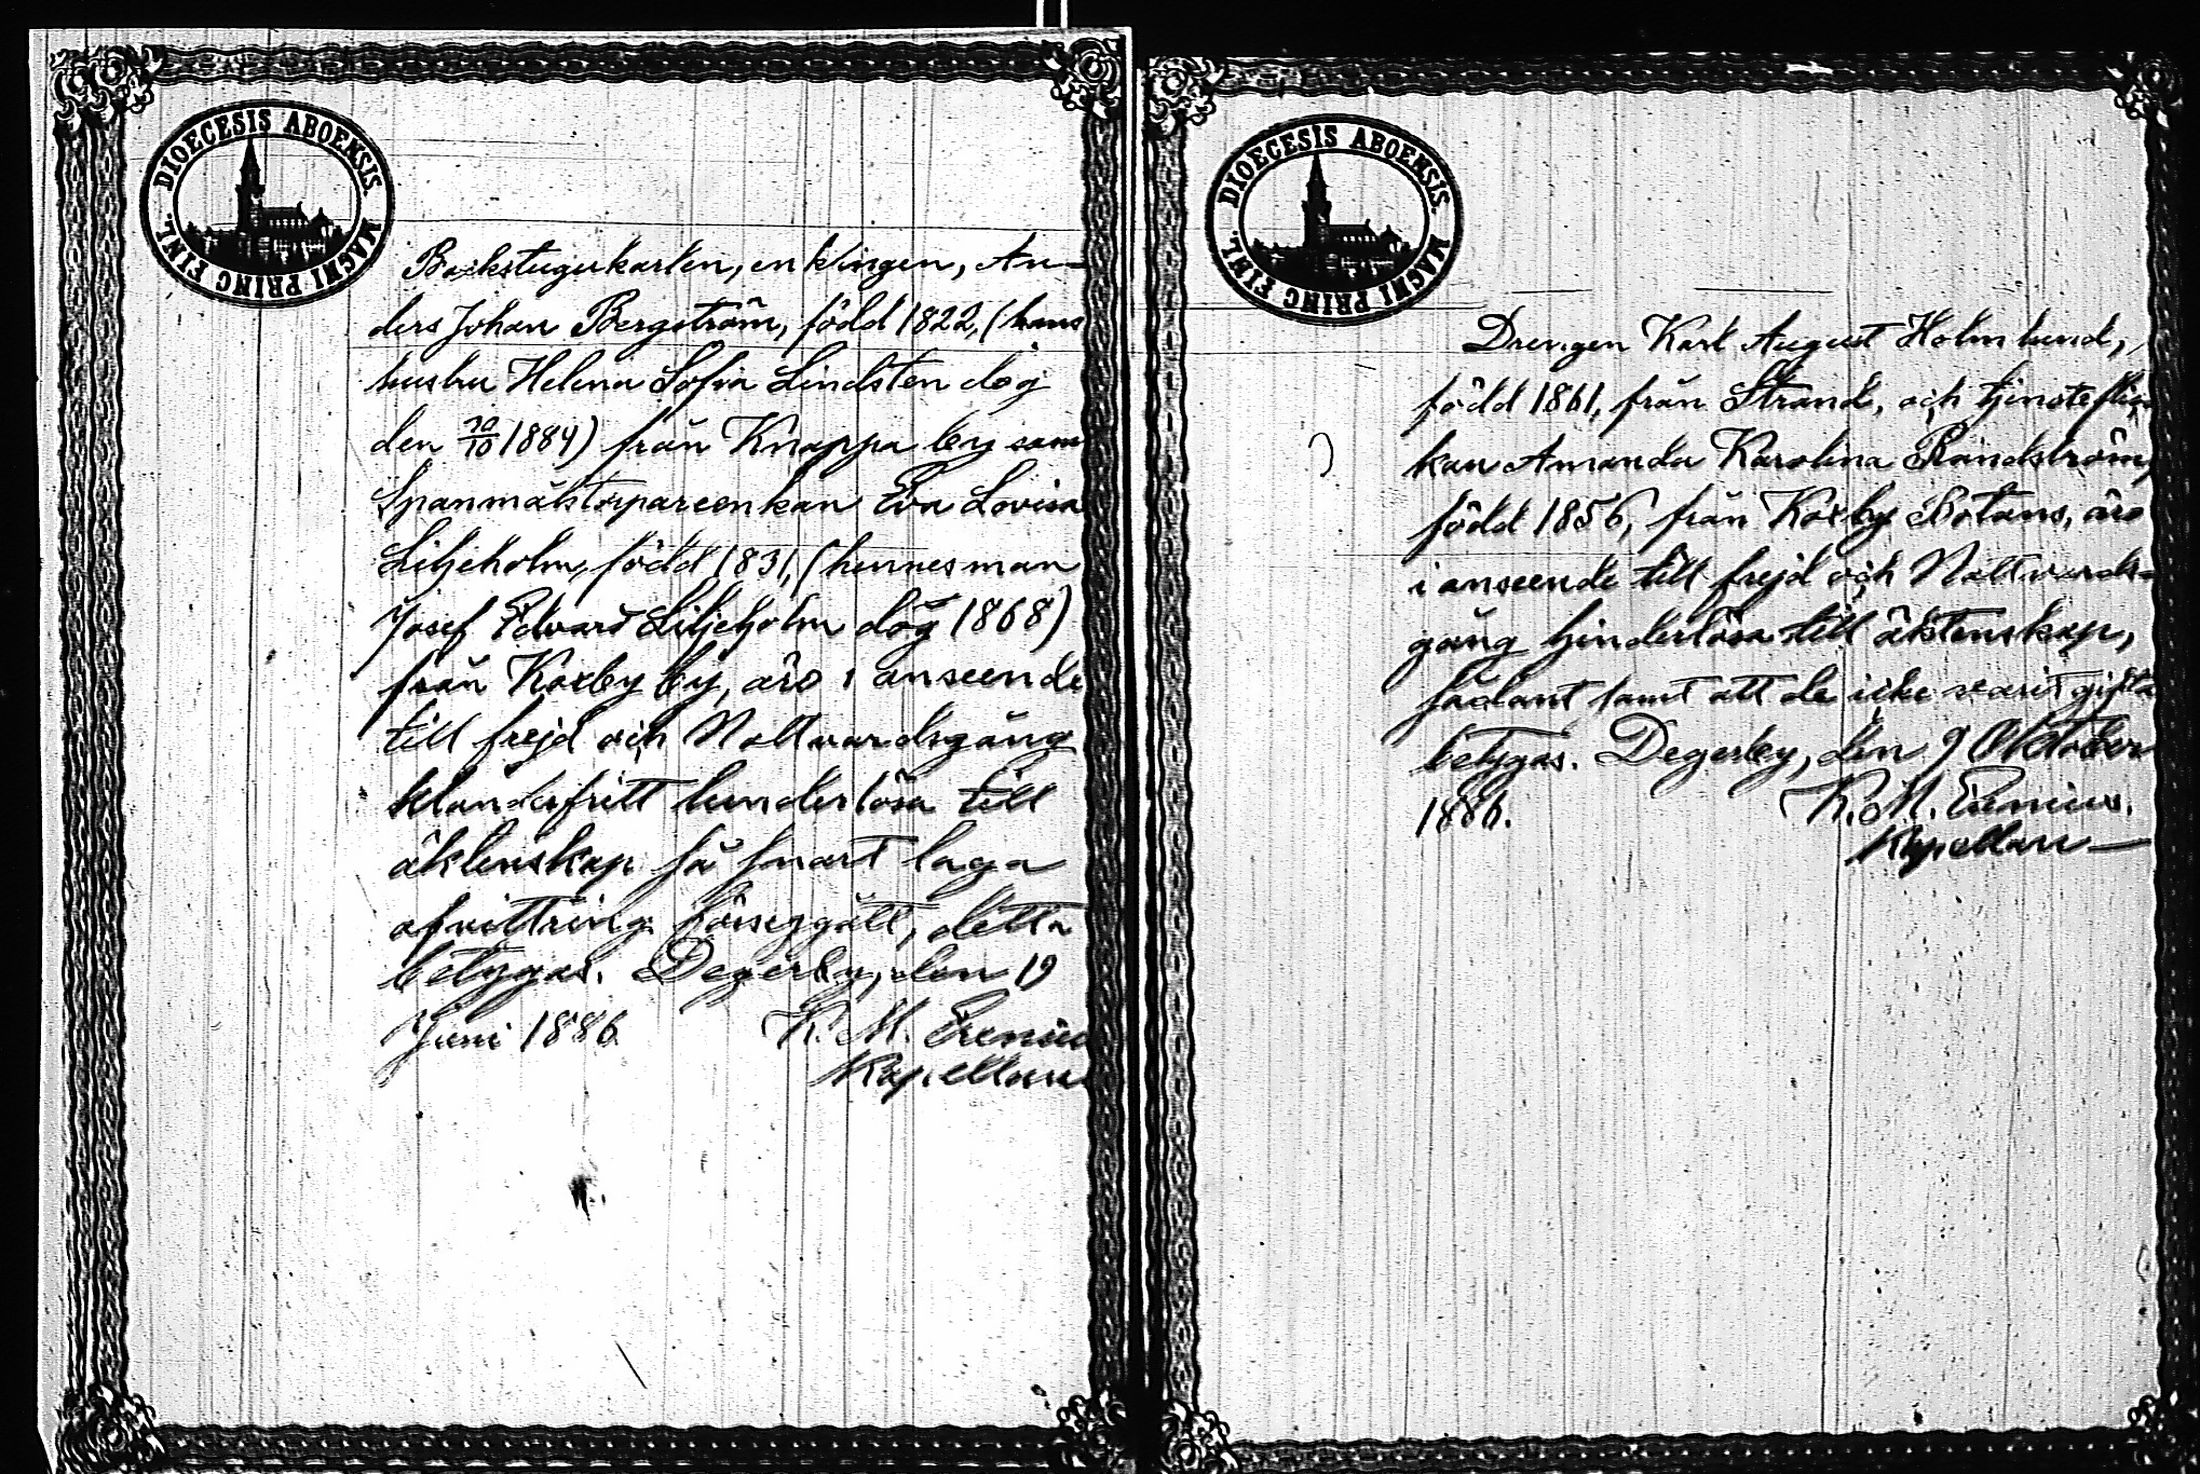 DIOECESIS ABOENSIS. MAGNI PRINC FINL.
Backstugukarlen, enklingen, An-
ders Johan Bergström, född 1822, (hans
hustru Helena Sofia Lindsten dog
den 1884) från Knappa by samt
Spanmålstorpareenkan Eva Lovisa
Liljeholm, född 1831, (hennes man
Josef Edvard Liljeholm dog 1868)
från Koxby by, äro i anseende
till frejd och Nattvardsgång
klanderfritt hinderlösa till
äktenskap så snart laga
afvittring försiggått, detta
betygas. Degerby, den 19
Juni 1886. K. M. Erenius
Kapellan
DIOECESIS ABOENSIS. MAGNI PRINC FINL.
Drengen Karl August Holmlund,
född 1861, från Strand, och tjensteflic
kan Amanda Karolina Randström,
född 1856, från Koxby Rotans, äro
i anseende till frejd och Nattvards-
gång hinderlösa till äktenskap,
sådant samt att de icke varit gifta
betygas. Degerby, den 9 Oktober
1886. K. M. Erenius.
Kapellan